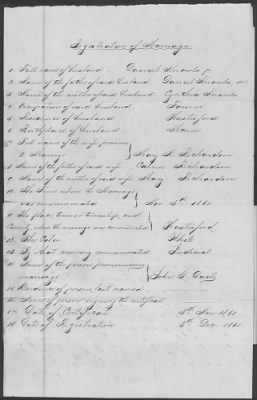 Registration of Marriage
1. Full name of husband Daniel Swauls jr
2. Name of the father of said husband Daniel Swauls
3. Name of the mother of said husband Cynthia Swauls
4. Occupation of said husband Farmer
5. Residence of husband
6. Birthplace of husband
7. Full name of the wife previous
to Marriage May A. Richardson
8. Name of the father of said wife Calvin Richardson
9. Name of the mother of said wife May Richardson
10. The time when the Marriage
was consummated Nov 5th 1861
11. The place, town or township, and
County, where the marriage was consummated
12. The Color White
13. By what ceremony consummated Judicial
14. Name of the person pronouncing
marriage John G.
15. Residence of person last named
16. Name of person signing the certificate
17. Date of Certificate 5th Nov 1861
18. Date of Registration 5th Dec 1861